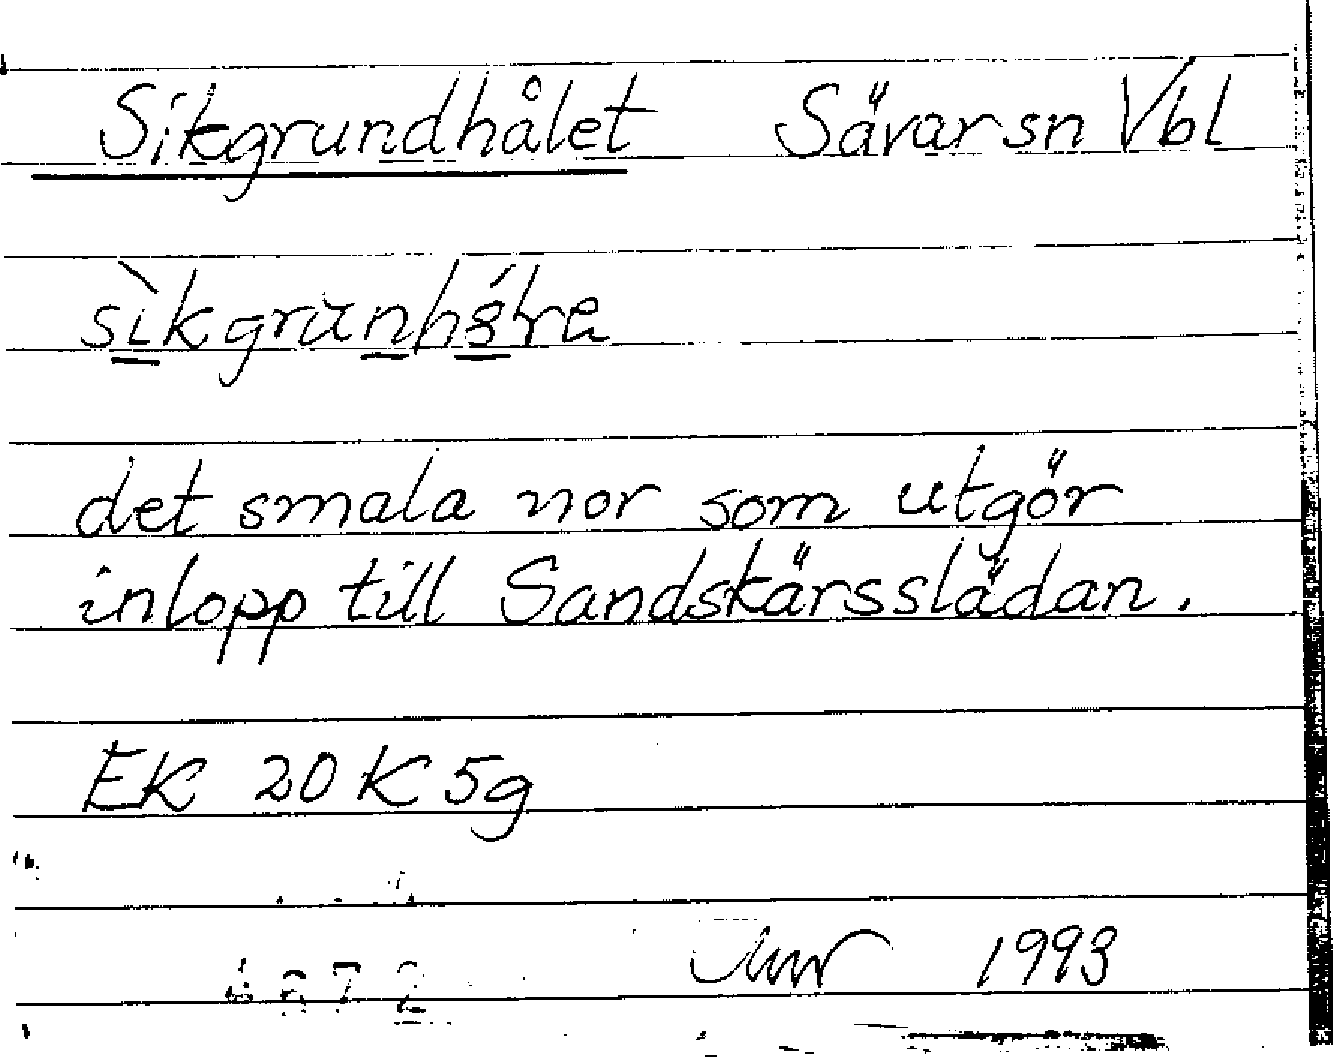 Sikgrundhålet Sävar sn Vbl
det smala nor som utgör
inlopp till Sandskärsslädan.
EK 20 K 5g
1993